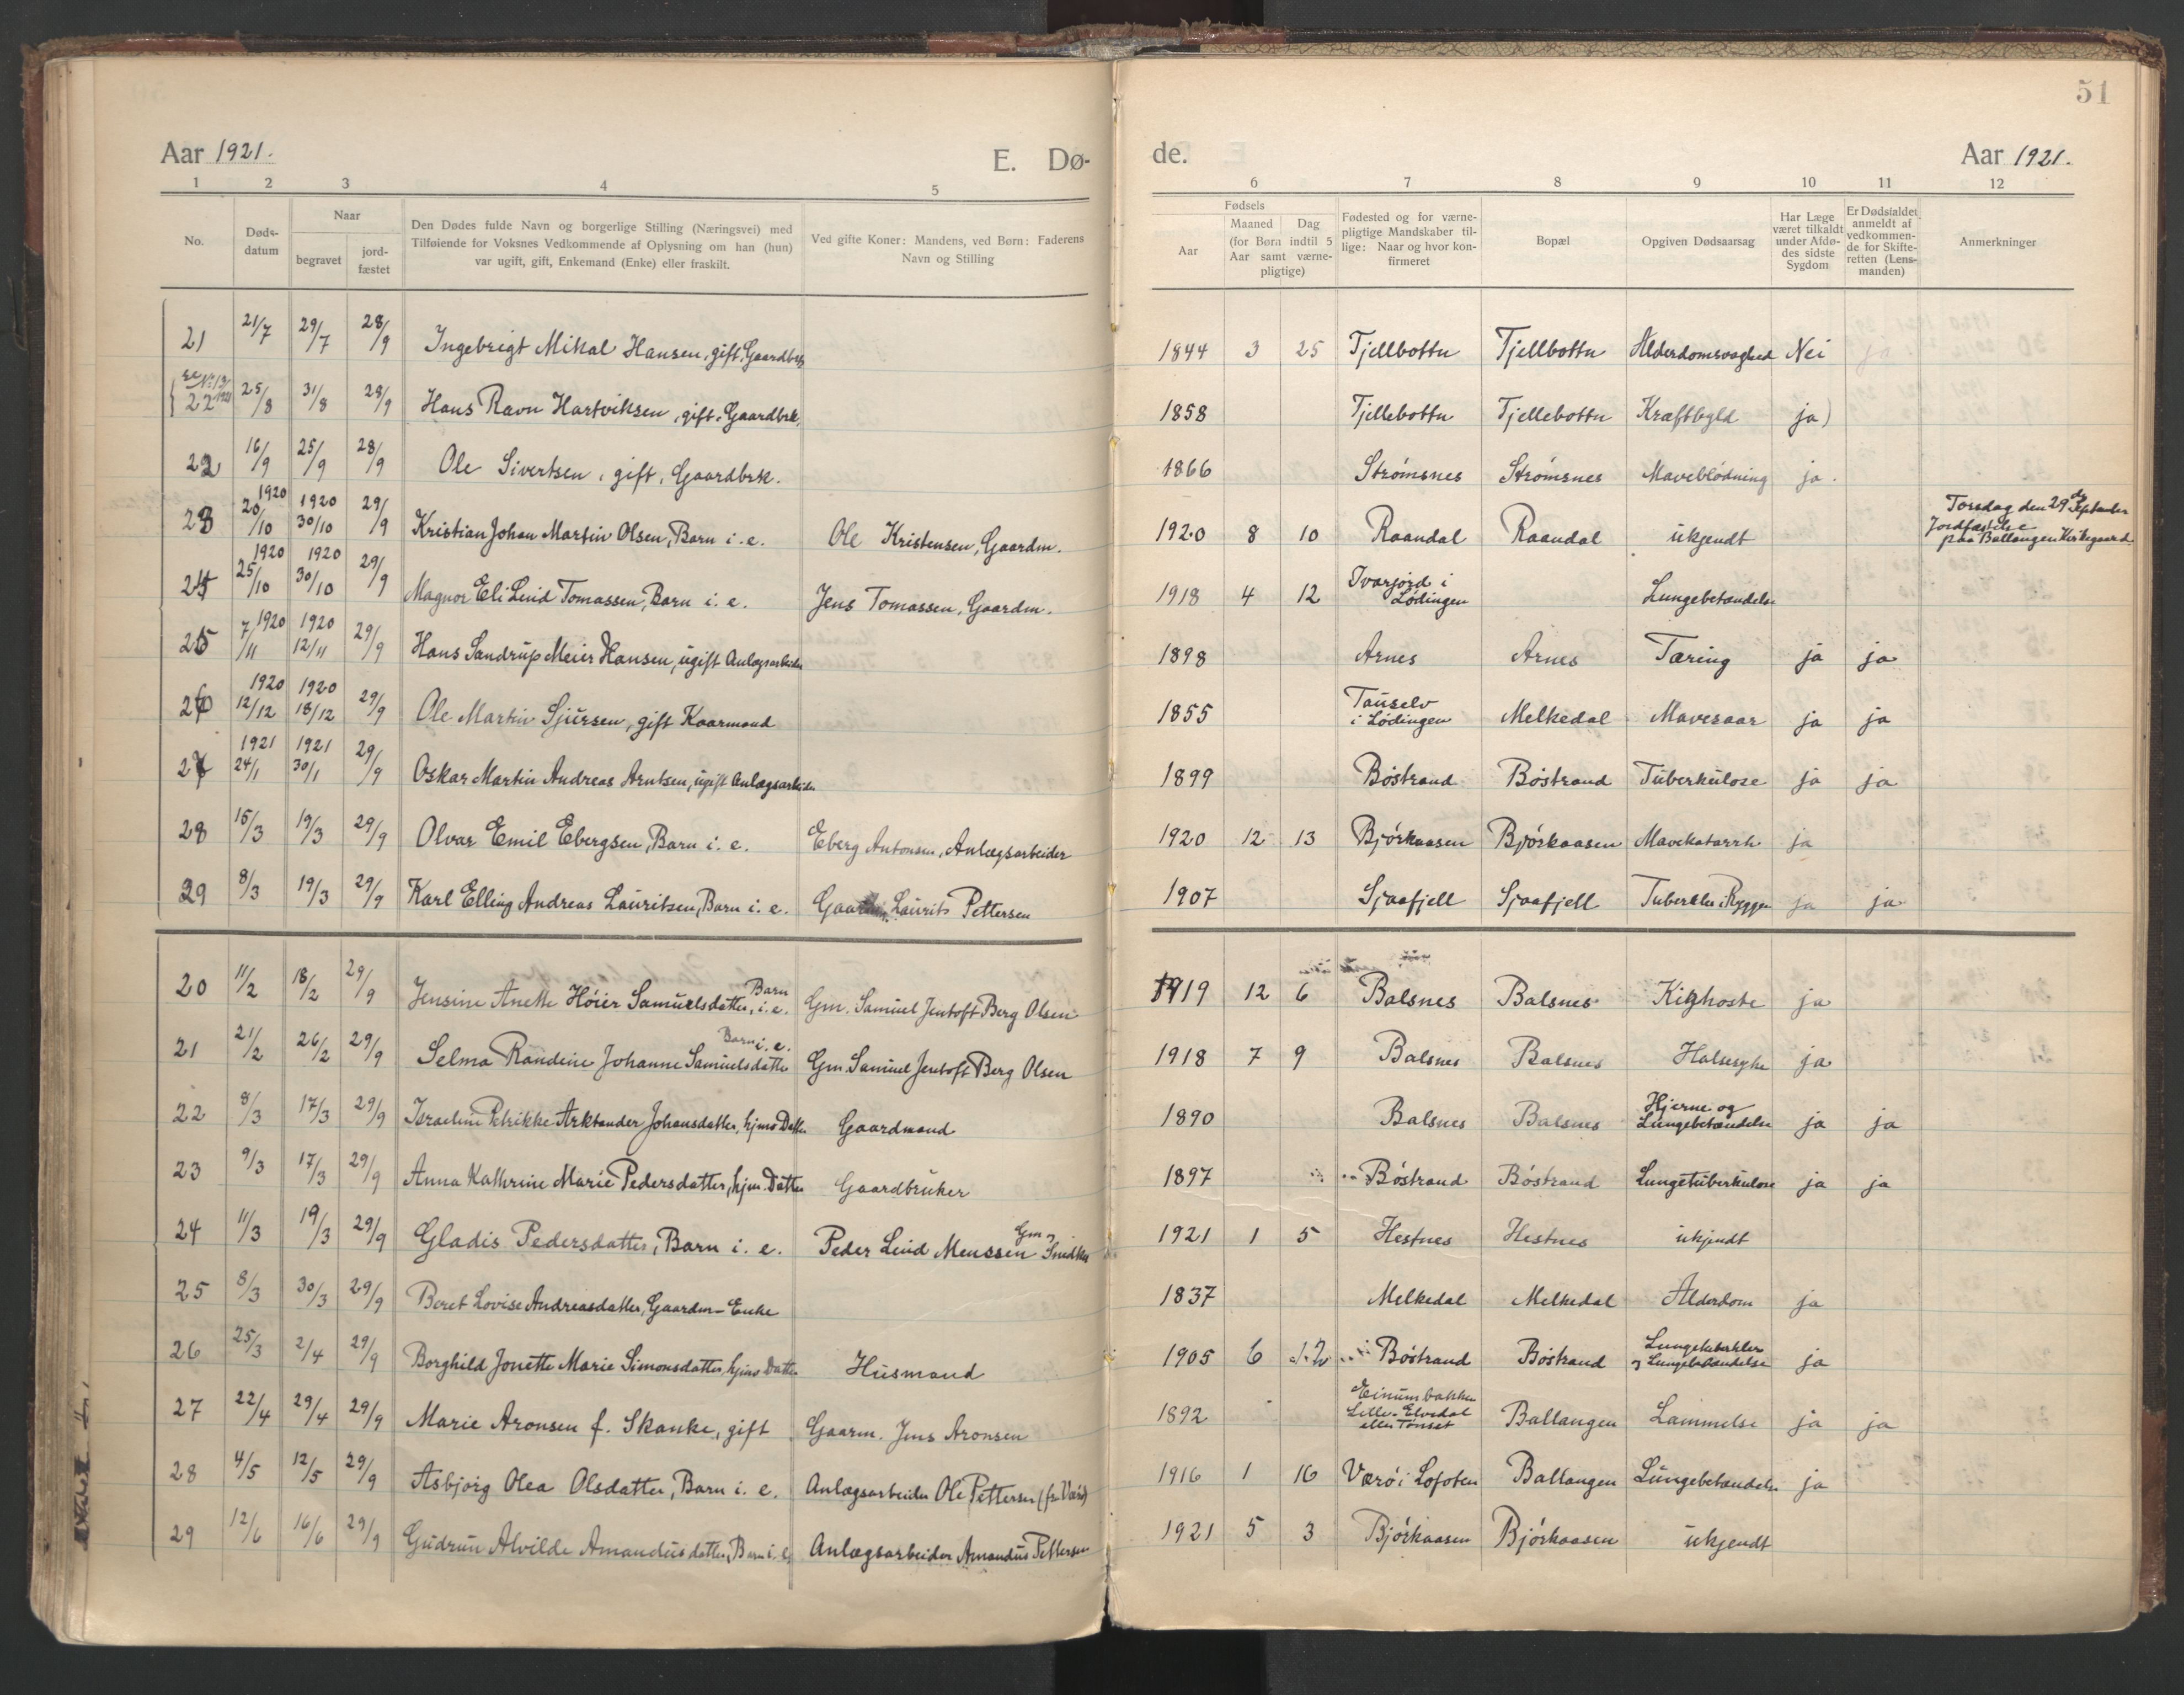 51
Aar 1921. E. Dø- de. Aar 1921.
1 2 3 4 5 6 7 8 9 10 11 12
No. Døds-datum Naar begravet jord-fæstet Den Dødes fulde Navn og borgerlige Stilling (Næringsvei) med Tilføiende for Voksnes Vedkommende af Oplysning om han (hun) var ugift, gift, Enkemand (Enke) eller fraskilt. Ved gifte Koner: Mandens, ved Børn: Faderens Navn og Stilling Fødsels Aar Maaned Dag (for Børn indtil 5 Aar samt værne-pligtige) Fødested og for værne-pligtige Mandskaber til-lige: Naar og hvor kon-firmeret Bopæl Opgiven Dødsaarsag Har Læge været tilkaldt under Afdø-des sidste Sygdom Er Dødsfaldet anmeldt af vedkommen-de for Skifte-retten (Lens-manden) Anmerkninger
21 21/7 29/7 28/9 Ingebrigt Mikal Hansen, gift, Gaardbrk 1844 3 25 Tjellbottn Tjellbottn Alderdomssvaghed Nei
22 25/8 31/8 28/9 Hans Ravn Hartviksen, gift, Gaardbrk. 1858 Tjellebottn Tjellebottn Kræftbyld ja)
22 16/9 25/9 28/9 Ole Sivertsen, gift, Gaardbrk. 1866 Strømsnes Strømsnes Maveblødning ja.
23 1920 20/10 1920 30/10 29/9 Kristian Johan Martin Olsen, Barn i. e. Ole Kristensen, Gaardm. 1920 8 10 Raandal Raandal ukjendt Torsdag den 29de September Jordfæstelse paa Ballangen Kirkegaard.
24 1920 25/10 1920 30/10 29/9 Magnor Eli Lind Tomassen, Barn i. e. Jens Tomassen, Gaardm. 1918 4 12 Ivarjord i Lødingen Lungebetændelse
25 1920 7/11 1920 12/11 29/9 Hans Sandrup Meier Hansen, ugift Anlægsarbeider 1898 Arnes Arnes Tæring ja ja
26 1920 12/12 1920 18/12 29/9 Ole Martin Sjursen, gift Kaarmand 1855 Tauselv i Lødingen Melkedal Mavesaar ja ja
27 1921 24/1 1921 30/1 29/9 Oskar Martin Andreas Arntsen, ugift Anlægsarbeider 1899 Bøstrand Bøstrand Tuberkulose ja ja
28 15/3 19/3 29/9 Olvar Emil Ebergsen, Barn i. e. Eberg Antonsen, Anlægsarbeider 1920 12 13 Bjørkaasen Bjørkaasen Mavekatarrh ja
29 8/3 19/3 29/9 Karl Elling Andreas Lauritsen, Barn i. e. Laurits Pettersen 1907 Sjaafjell Sjaafjell Tuberkler i Ryggen ja ja
20 11/2 18/2 29/9 Jensine Anette Høier Samuelsdatter, Barn i. e. Gm. Samuel Jentoft Berg Olsen 1919 12 6 Balsnes Balsnes Kighoste ja
21 21/2 26/2 29/9 Selma Randine Johanne Samuelsdatter Barn i. e. Gm. Samuel Jentoft Berg Olsen 1918 7 9 Balsnes Balsnes Halsesyke ja
22 8/3 17/3 29/9 Israeline Petrikke Arktander Johansdatter, hjms Datter Gaardmand 1890 Balsnes Balsnes Hjerne og Lungebetændelse ja ja
23 9/3 17/3 29/9 Anna Kathrine Marie Pedersdatter, hjm. Datter Gaardbruker 1897 Bøstrand Bøstrand Lungetuberkulose ja ja
24 11/3 19/3 29/9 Gladis Pedersdatter, Barn i. e. Peder Lind Menssen Gm og Snedker 1921 1 5 Hestnes Hestnes ukjendt
25 8/3 30/3 29/9 Beret Lovise Andreasdatter, Gaardm-Enke 1837 Melkedal Melkedal Alderdom ja
26 25/3 2/4 29/9 Borghild Jonette Marie Simonsdatter, hjms Datter Husmand 1905 6 12 Bøstrand Bøstrand Lungetuberkler og Lungebetændelse ja
27 22/4 29/4 29/9 Marie Aronsen f. Skanke, gift Gaarm. Jens Aronsen 1892 Einumbakken Lille-Elvedal eller Tønset Ballangen Lammelse ja ja
28 4/5 12/5 29/9 Asbjørg Olea Olsdatter, Barn i. e. Anlægsarbeider Ole Pettersen (fr Værø) 1916 1 16 Værø i Lofoten Ballangen Lungebetændelse ja
29 12/6 16/6 29/9 Gudrun Alvilde Amandusdatter, Barn i. e. Anlægsarbeider Amandus Pettersen 1921 5 3 Bjørkaasen Bjørkaasen ukjendt